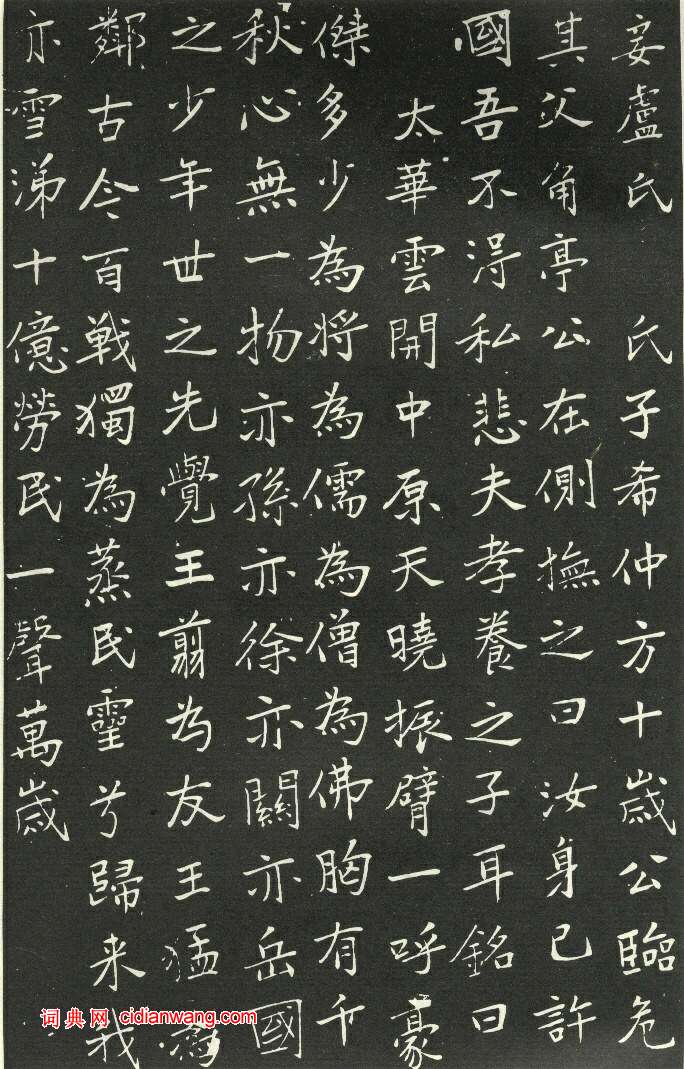 妾盧氏　氏子希仲方十歲公臨危
其父角亭公在側撫之曰汝身已許
國吾不淂私悲夫孝養之子耳銘曰
太華雲開中原天曉振臂一呼豪
傑多少為將為儒為僧為佛胸有千
秋心無一物亦孫亦徐亦關亦岳國
之少年世之先覺王翦为友王猛為
鄰古今百戰獨為蒸民靈兮歸来我
亦雪涕十億勞民一聲萬歲
词典网 cidianwang.com